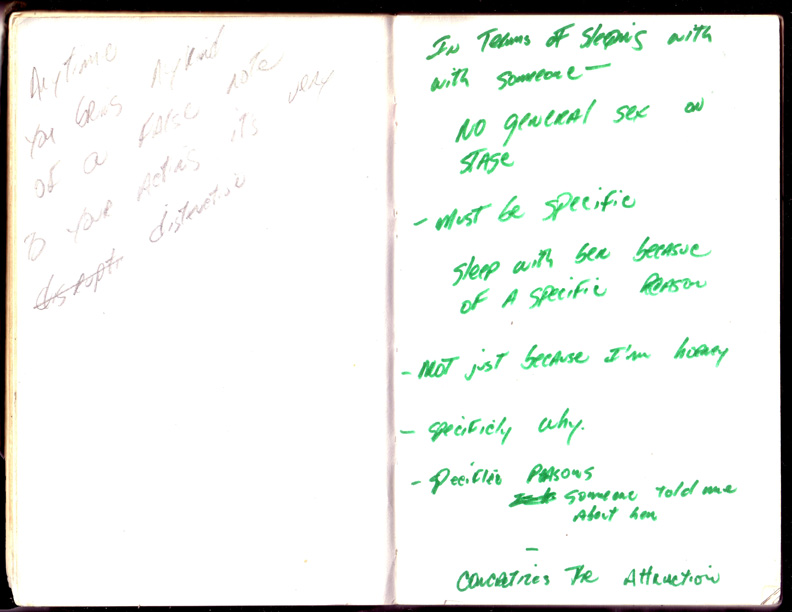 Anytime
You bring Aykind
of a FALSE note
to your Acting it's very
disrupti distraction
In Terms of Sleeping with
with someone —
NO general sex on
STAGE
- Must be specific
Sleep with her becasue
of A specific REASON
- NOT just because I'm horny
- specificly why.
- Specified REASONS
someone told me
About her
-
CONCRETIZES The Attraction